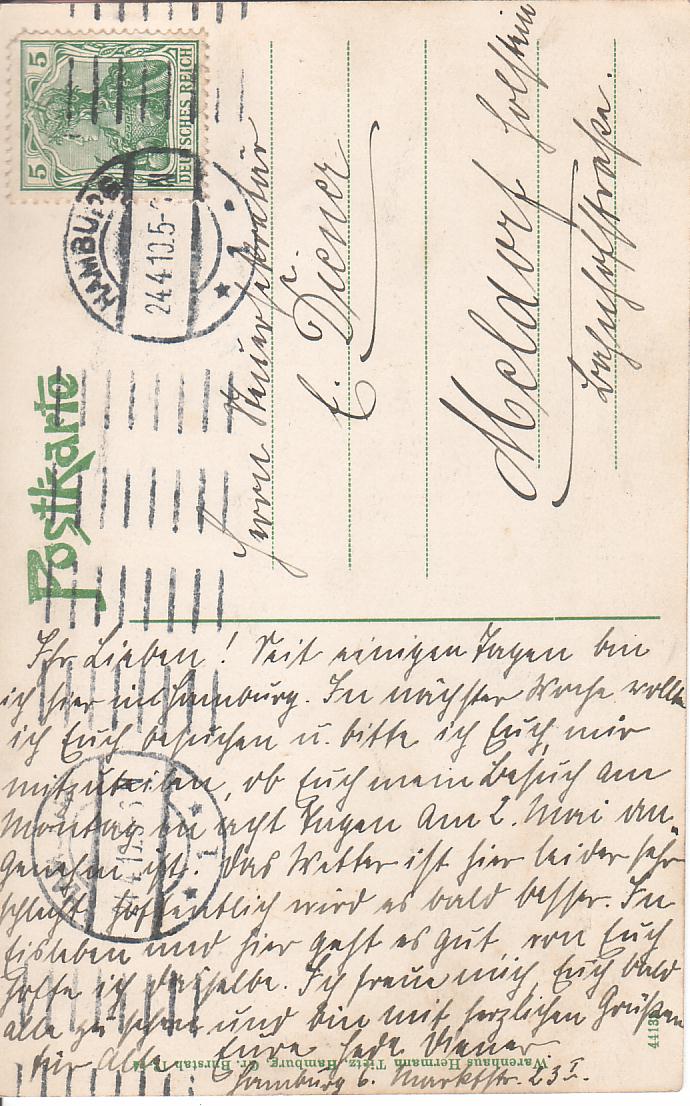 Postkarte
5 5
DEUTSCHES REICH
HAMBURG
24.4.10.5-
* 1 *
Herrn Steuersekretär
C. Diener
Meldorf Holstein
Bahnhofstraße.
Ihr Lieben! Seit einigen Tagen bin
ich hier in Hamburg. In nächster Woche wollte
ich Euch besuchen u. bitte ich Euch, mir
mitzuteilen, ob Euch mein Besuch am
Montag in acht Tagen am 2. Mai an
genehm ist. Das Wetter ist hier leider sehr
schlecht hoffentlich wird es bald besser. In
Eisleben und hier geht es gut, von Euch
hoffe ich dasselbe. Ich freue mich, Euch bald
alle zu sehen und bin mit herzlichen Grüßen
für Alle Eure Diener
Hamburg 6. Marktstr. 23 I.
Warenhaus Hermann Tietz, Hamburg, Gr. Burstah
4413